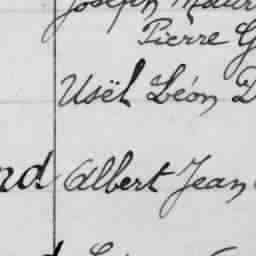 Joseph Maur
Pierre G
Usël Léon D
nd Albert Jean